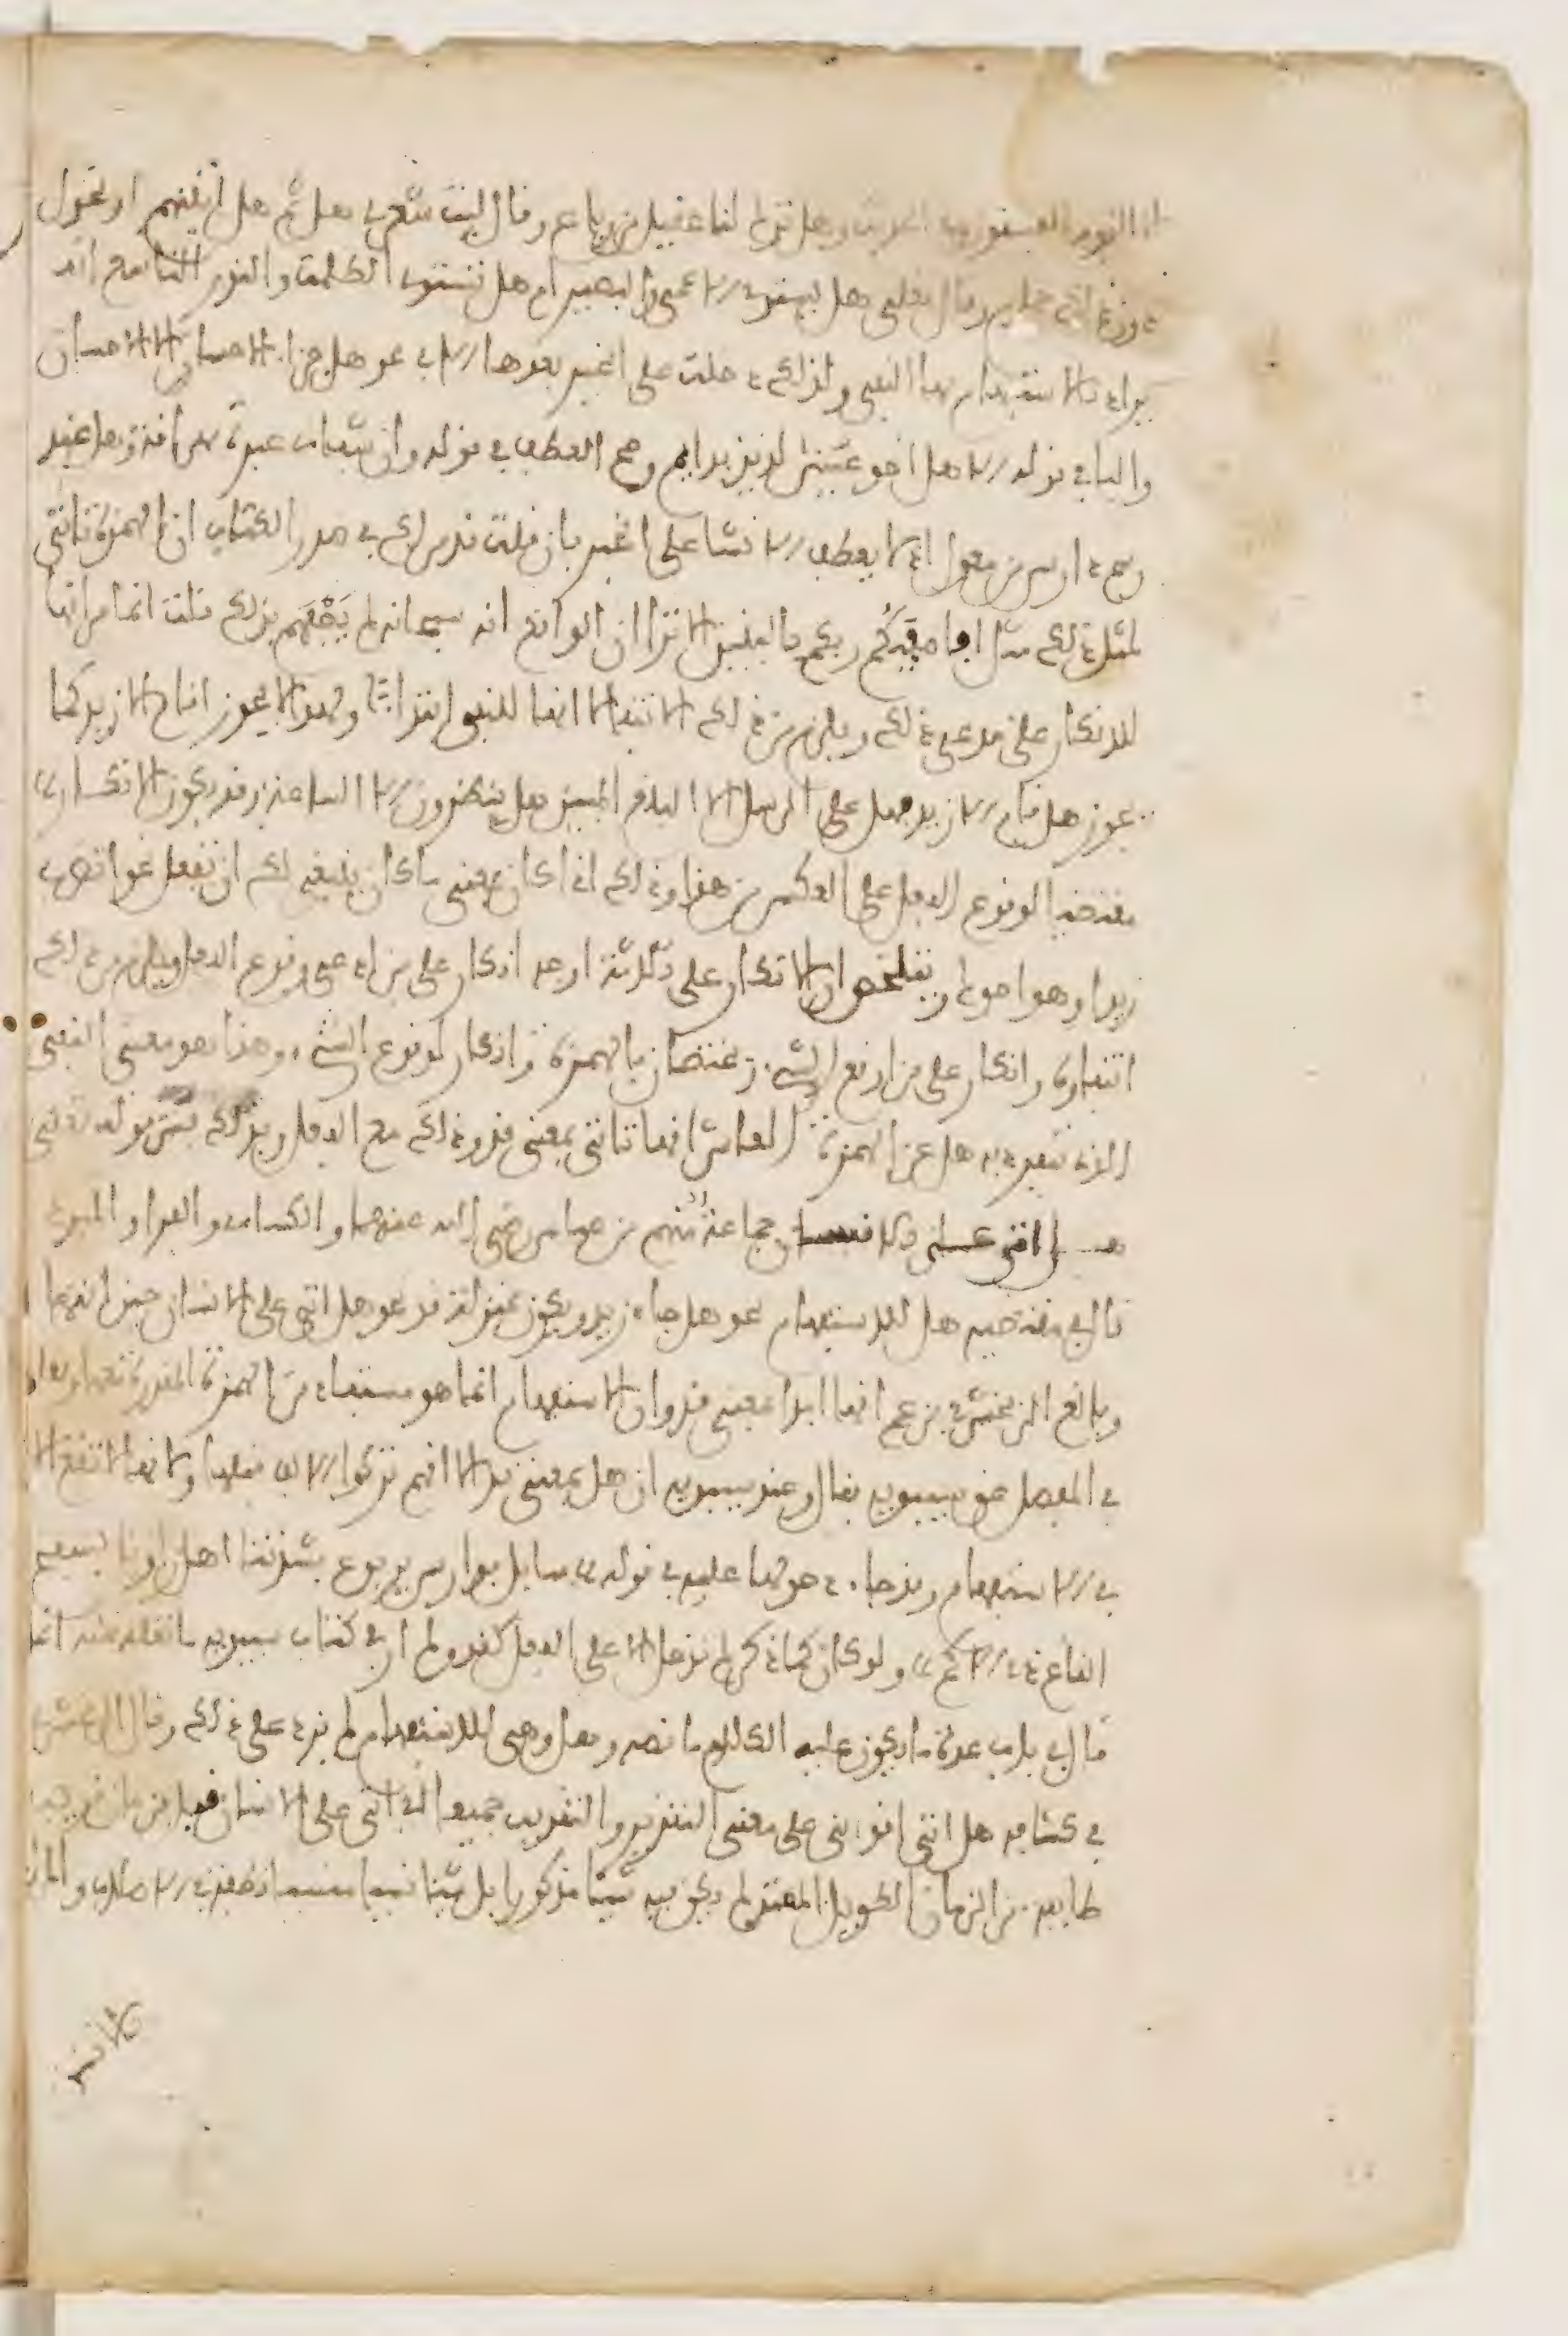 الا القوم الفسقون وفي الحديث وهل ترك لنا عقيل من رباع وقال ليت شعري هل ثم هل اتينهم او يحول
دون ذاك حمام وقال تعلى هل يستوي الاعمى والبصير ام هل تستوي الظلمت والنور التاسع انه
يراد بالاستفهام بها النفي ولذلك دخلت على الخبر بعدها الا في نحو هل جزاء الاحسان الا الاحسان
والباء في قوله الا هل اخو عيش لذيذ بدايم وصح العطف في قوله وان شفاءي عبرة مهراقة وهل عند
رسم دارس من معول اذ لا يعطف الانشا على الخبر فان قلت قد مر لك في صدر الكتاب ان الهمزة تاتي
لمثل ذلك مثل افاصفيكم ربكم بالبنين الا ترى ان الواقع انه سبحانه لم يصفهم بذلك قلت انما مر انها
للانكار على مدعي ذلك ويلزم من ذلك الانتفاء لا انها للنفي ابتداء ولهذا لا يجوز اقام الا زيد كما
يجوز هل قام الا زيد فهل على الرسل الا البلغ المبين هل ينظرون الا الساعة وقد يكون الانكار
مقتضيا لوقوع الفعل على العكس من هذا وذلك اذا كان بمعنى ما كان ينبغي لك ان تفعل نحو اتضرب
زيدا وهو اخوك ويتلخص ان الانكار على ثلاثة اوجه انكار على من ادعى وقوع الفعل ويلزم من ذلك
انتفاؤه وانكار على من اوقع الشيء ويختصان بالهمزة وانكار لوقوع الشيء وهذا هو معنى النفي
الذي تنفرد به هل عن الهمزة العاشر انها تاتي بمعنى قد وذلك مع الفعل وبذلك فسر قوله تعلى
هل اتى على الانسان جماعة منهم بن عباس رضي الله عنهما والكساءي والفراء والمبرد
قال في مقتضبه هل للاستفهام نحو هل جاء زيد ويكون بمنزلة قد نحو هل اتى على الانسان حين انتهى
وبالغ الزمخشري فزعم انها ابدا بمعنى قد وان الاستفهام انما هو مستفاد من الهمزة المقدرة معها ونقله
في المفصل عن سيبويه فقال وعند سيبويه ان هل بمعنى قد الا انهم تركوا الالف قبلها لانها لا تقع الا
في الاستفهام وقد جاء دخولها عليها في قوله سايل فوارس يربوع بشدتنا اهل راونا بسفح
القاع ذي الاكم ولو كان كما ذكر لم تدخل الا على الفعل كقد ولم ار في كتاب سيبويه ما نقله عنه انما
قال في باب عدة ما يكون عليه الكلام ما نصه وهل وهي للاستفهام لم يزد على ذلك وقال الزمخشري
في كشافه هل اتى اقد اتى على معنى التقرير والتقريب جميعا اي اتى على الانسان قبل زمان قريب
طايفة من الزمان الطويل الممتد لم يكن فيه شيئا مذكورا بل شيئا نسيا منسيا نطفة في الاصلاب والمراد